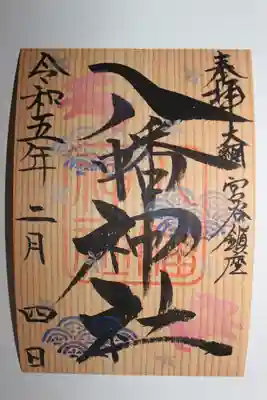 奉拝 大網 宮谷鎮座
八幡神社
令和五年 二月 四日